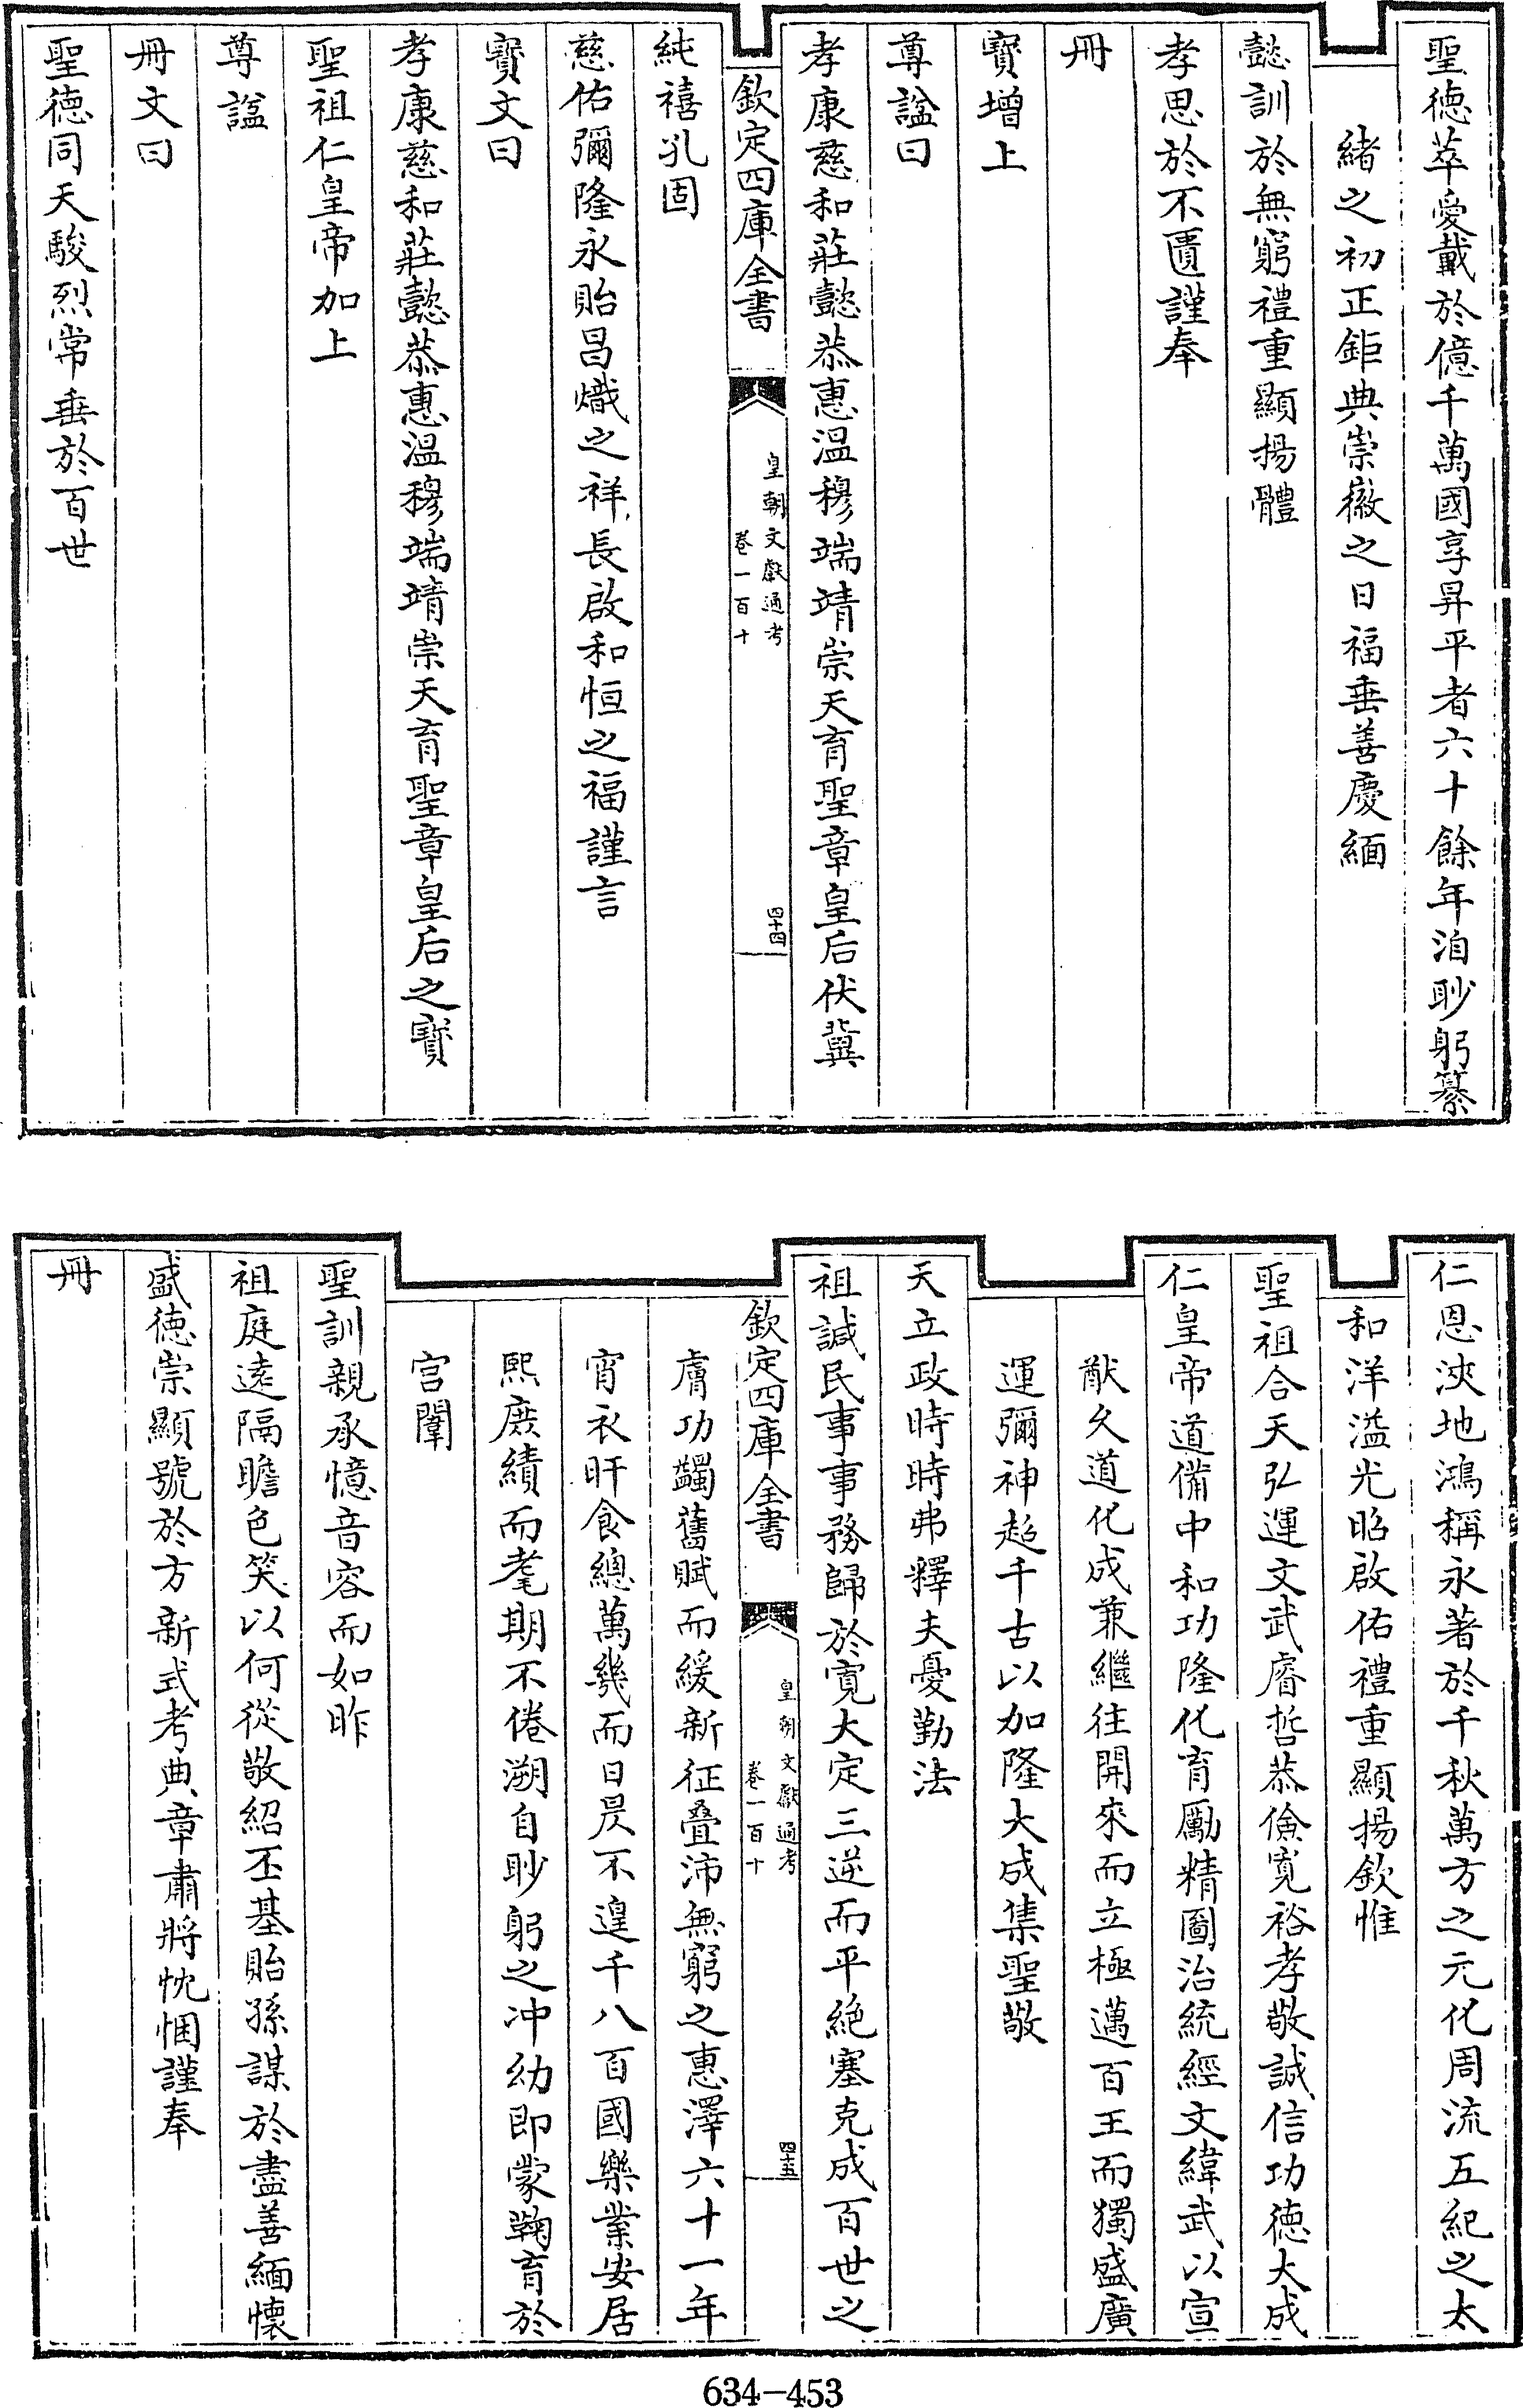 聖德萃愛戴於億千萬國享昇平者六十餘年洎眇躬纂
緒之初正鉅典崇徽之日福垂善慶緬
懿訓於無窮禮重顯揚體
孝思於不匱謹奉
冊
寶增上
尊諡曰
孝康慈和莊懿恭惠溫穆端靖崇天育聖章皇后伏冀
欽定四庫全書
皇朝文獻通考
卷一百十
四十四
純禧孔固
慈佑彌隆永貽昌熾之祥長啟和恒之福謹言
寶文曰
孝康慈和莊懿恭惠溫穆端靖崇天育聖章皇后之寶
聖祖仁皇帝加上
尊諡
冊文曰
聖德同天駿烈常垂於百世
仁恩浹地鴻稱永著於千秋萬方之元化周流五紀之太
和洋溢光昭啟佑禮重顯揚欽惟
聖祖合天弘運文武睿哲恭儉寬裕孝敬誠信功德大成
仁皇帝道備中和功隆化育勵精圖治統經文緯武以宣
猷久道化成兼繼往開來而立極邁百王而獨盛廣
運彌神超千古以加隆大成集聖敬
天立政時時弗釋夫憂勤法
祖諴民事事務歸於寬大定三逆而平絕塞克成百世之
欽定四庫全書
皇朝文獻通考
卷一百十
四十五
膚功蠲舊賦而緩新征疊沛無窮之惠澤六十一年
宵衣旰食總萬幾而日昃不遑千八百國樂業安居
熙庶績而耄期不倦溯自眇躬之冲幼即蒙鞠育於
宫闈
聖訓親承憶音容而如昨
祖庭遠隔瞻色笑以何從敬紹丕基貽孫謀於盡善緬懷
盛德崇顯號於方新式考典章肅將忱悃謹奉
冊
634-453